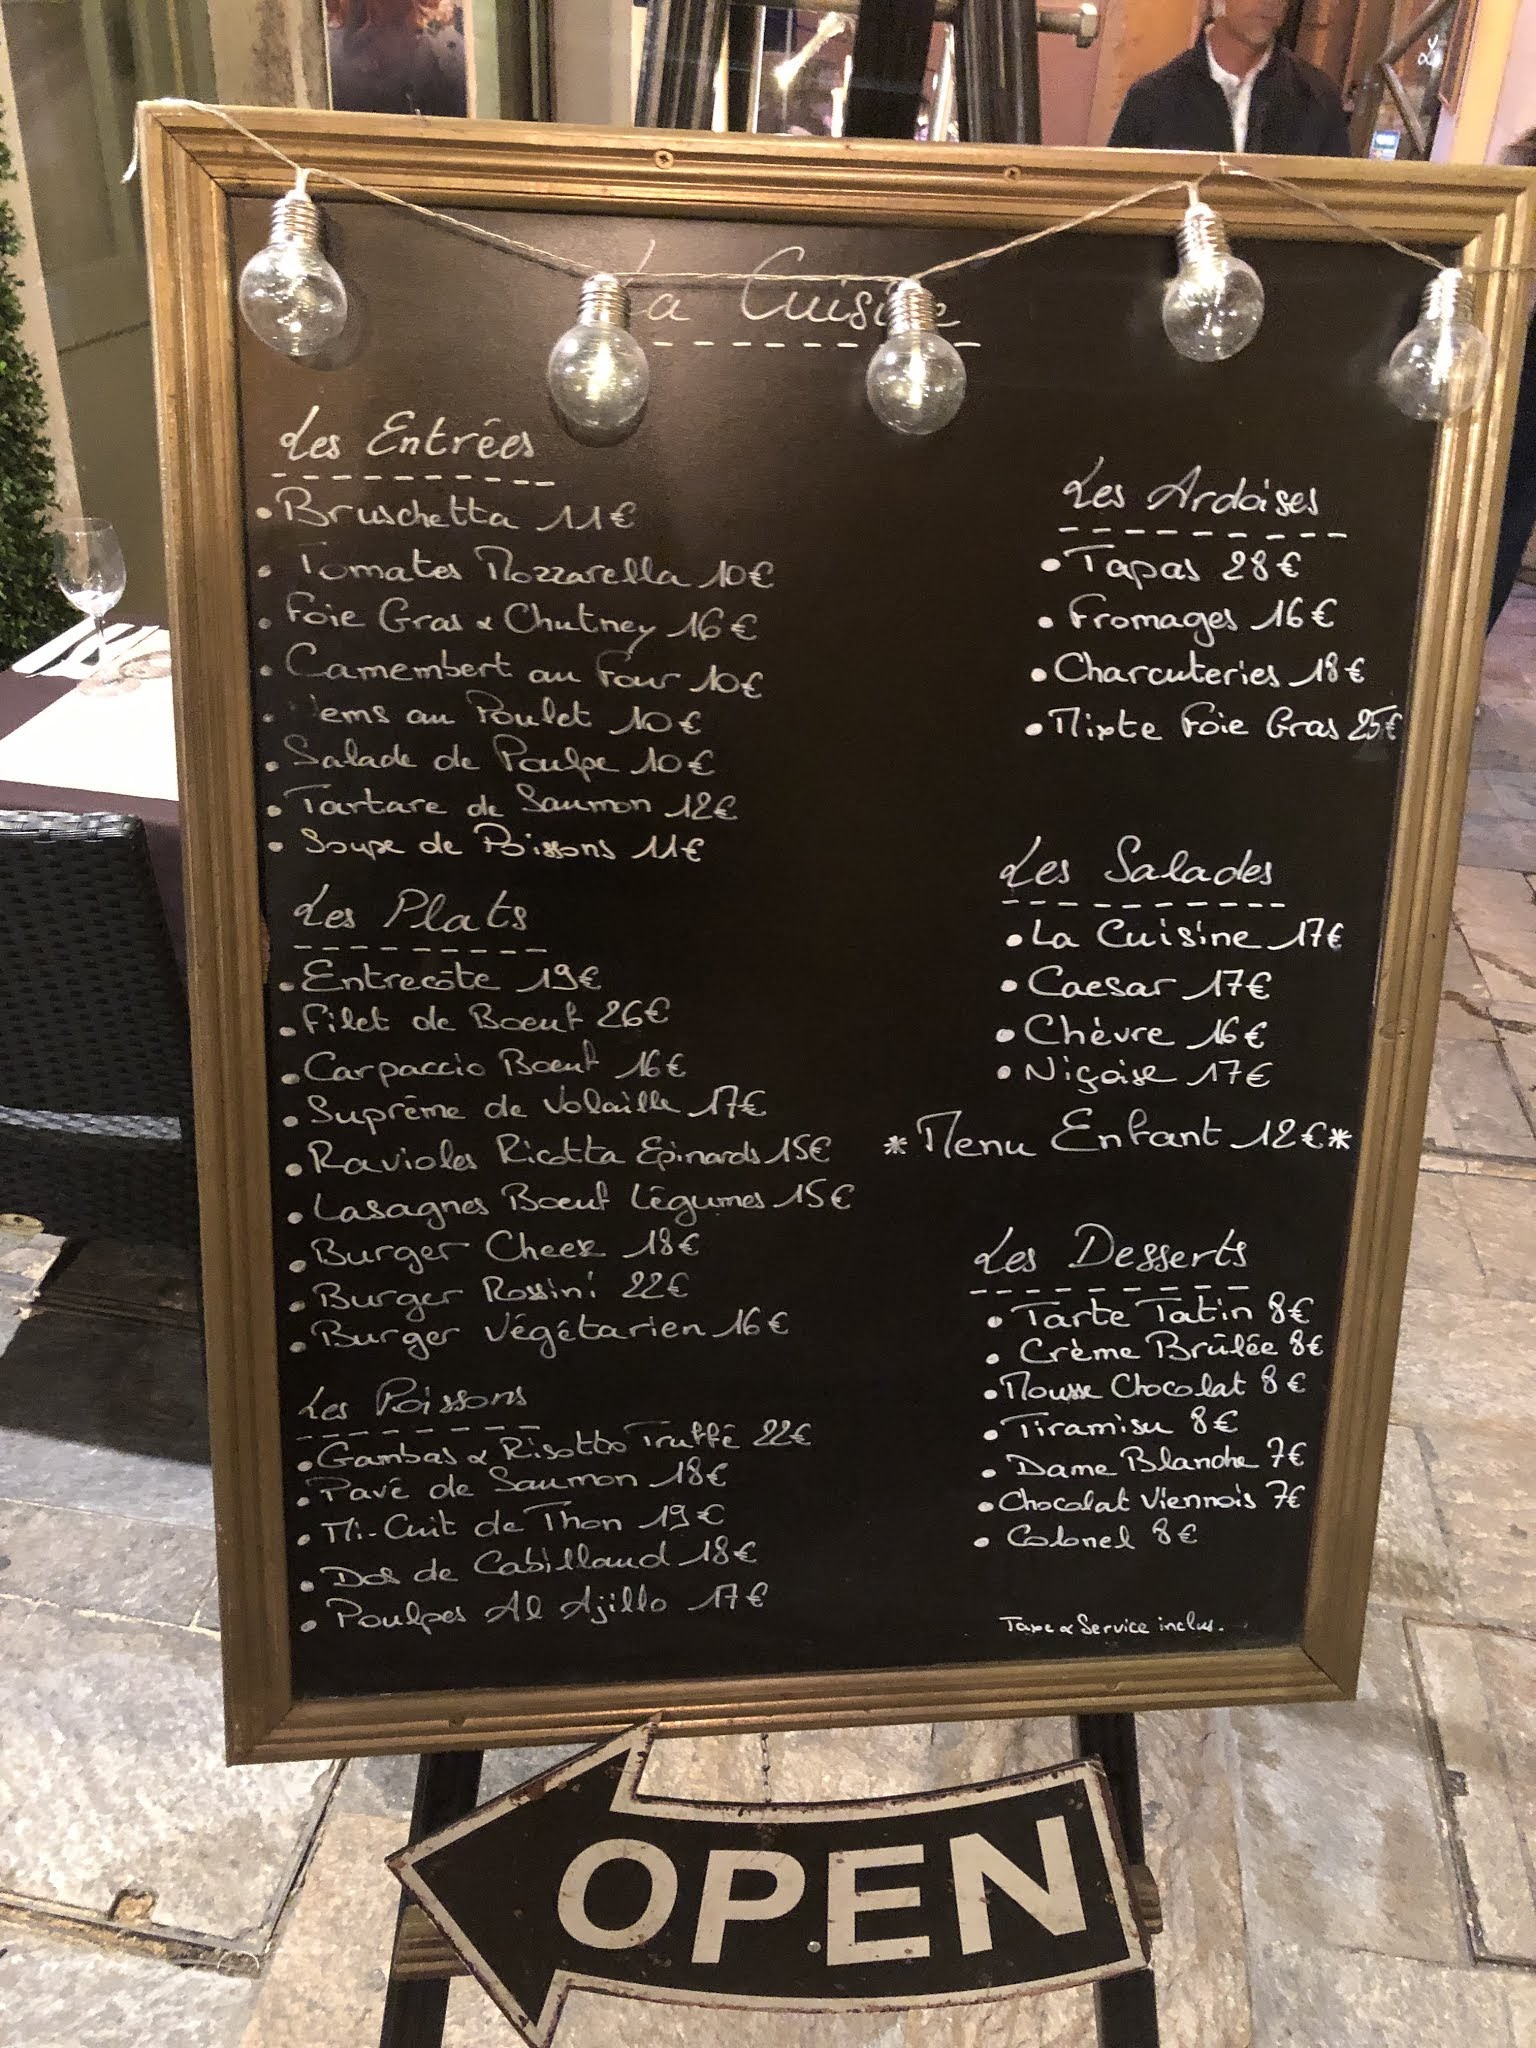 La Cuisine
Les Entrées
• Bruschetta 11€
• Tomates Mozzarella 10€
• Foie Gras & Chutney 16€
• Camembert au Four 10€
• Nems au Poulet 10€
• Salade de Poulpe 10€
• Tartare de Saumon 12€
• Soupe de Poissons 11€
Les Plats
• Entrecôte 19€
• Filet de Boeuf 26€
• Carpaccio Boeuf 16€
• Suprême de Volaille 17€
• Ravioles Ricotta Epinards 15€
• Lasagnes Boeuf Légumes 15€
• Burger Cheese 18€
• Burger Rossini 22€
• Burger Végétarien 16€
Les Poissons
• Gambas & Risotto Truffé 22€
• Pavé de Saumon 18€
• Mi-Cuit de Thon 19€
• Dos de Cabillaud 18€
• Poulpes Al Ajillo 17€
Les Ardoises
• Tapas 28€
• Fromages 16€
• Charcuteries 18€
• Mixte Foie Gras 25€
Les Salades
• La Cuisine 17€
• Caesar 17€
• Chèvre 16€
• Niçoise 17€
* Menu Enfant 12€ *
Les Desserts
• Tarte Tatin 8€
• Crème Brûlée 8€
• Mousse Chocolat 8€
• Tiramisu 8€
• Dame Blanche 7€
• Chocolat Viennois 7€
• Colonel 8€
Taxe & Service inclus.
OPEN